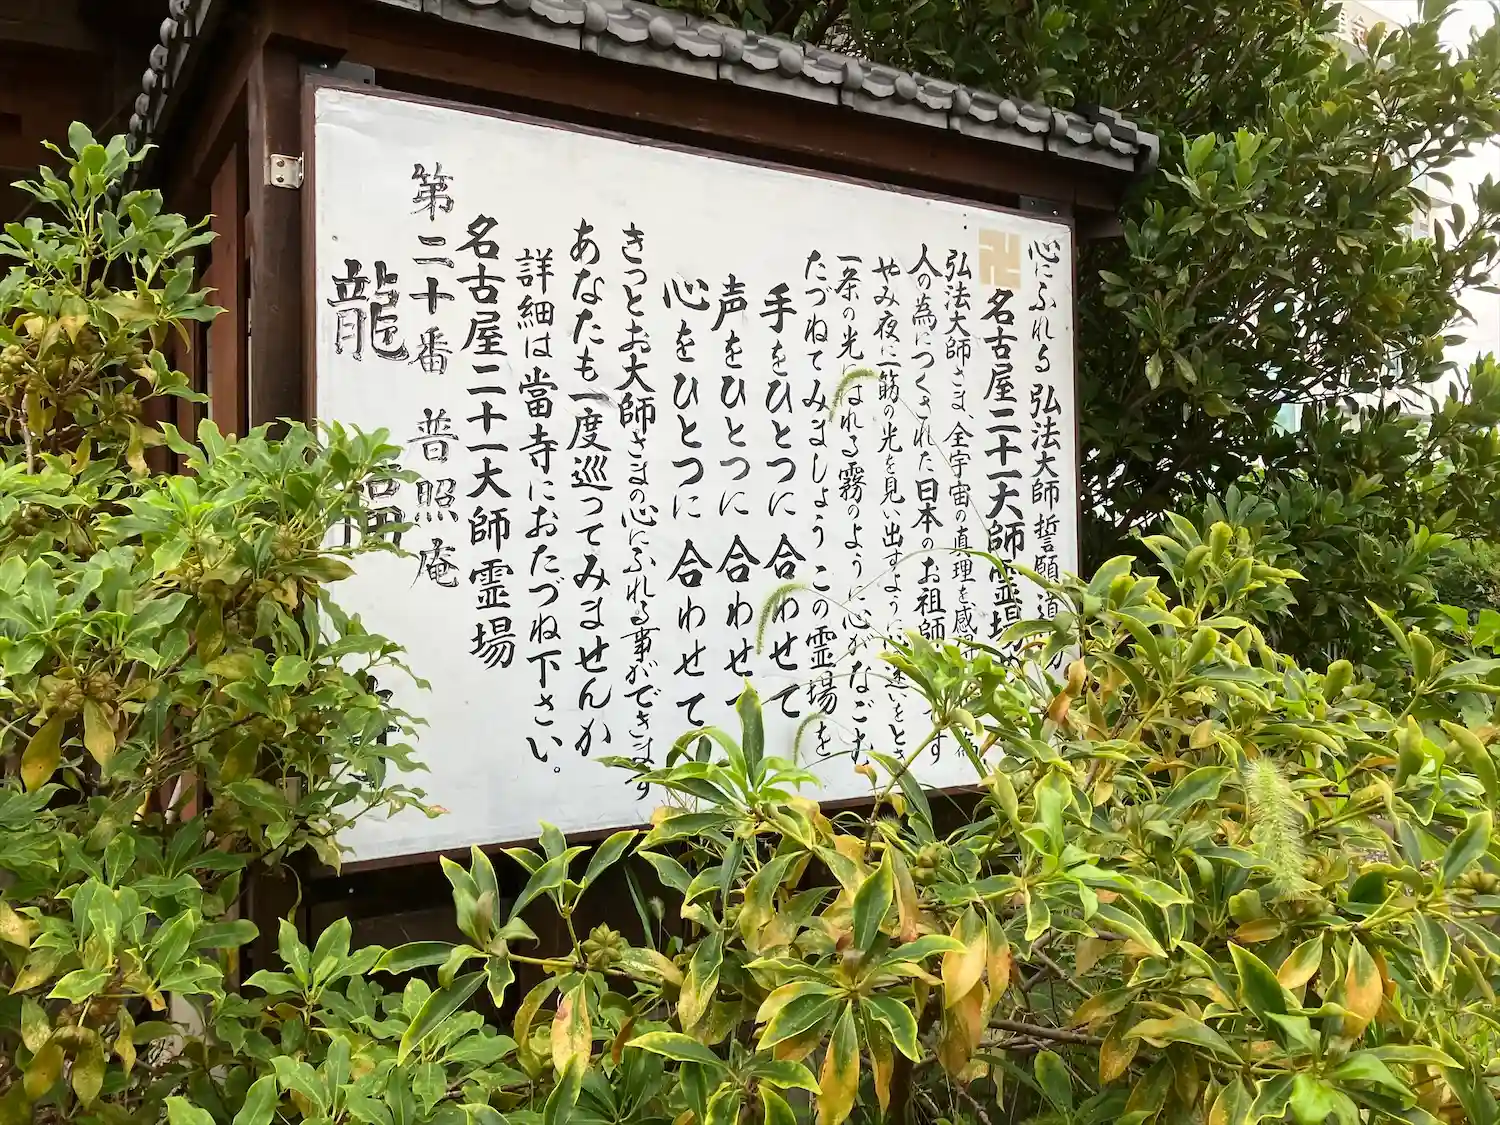 心にふれる 弘法大師誓願道
卍 名古屋二十一大師霊場
弘法大師さま、全宇宙の真理を感
人の為につくされた日本のお祖師 す
やみ夜に一筋の光を見い出すように 迷いをとき
一条の光にはれる霧のように心がなごむ
たづねてみましょうこの霊場を
手をひとつに合わせて
声をひとつに合わせて
心をひとつに合わせて
きっとお大師さまの心にふれる事ができます
あなたも一度巡ってみませんか
詳細は當寺におたづね下さい。
名古屋二十一大師霊場
第二十番 普照庵
龍福寺